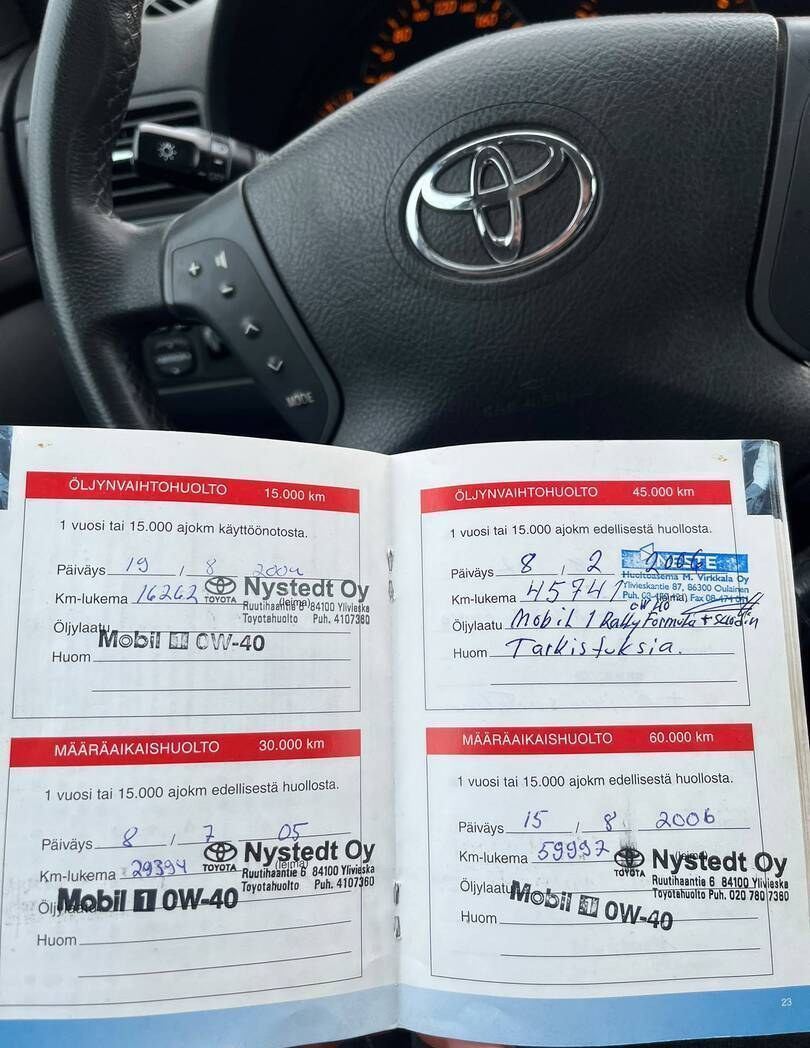 80 120 160
MODE
ÖLJYNVAIHTOHUOLTO 15.000 km
1 vuosi tai 15.000 ajokm käyttöönotosta.
Päiväys 19 / 8 2004
Km-lukema 16262 TOYOTA Nystedt Oy
(leima)
Ruutihaantie 6 84100 Ylivieska
Toyotahuolto Puh. 4107360
Öljylaatu Mobil 1 0W-40
Huom
MÄÄRÄAIKAISHUOLTO 30.000 km
1 vuosi tai 15.000 ajokm edellisestä huollosta.
Päiväys 8 / 7 05
Km-lukema 29394 TOYOTA Nystedt Oy
(leima)
Ruutihaantie 6 84100 Ylivieska
Toyotahuolto Puh. 4107360
Öljylaatu Mobil 1 0W-40
Huom
ÖLJYNVAIHTOHUOLTO 45.000 km
1 vuosi tai 15.000 ajokm edellisestä huollosta.
Päiväys 8 / 2 2006 NESTE
Huoltoasema M. Virkkala Oy
Km-lukema 45747 Ylivieskantie 87, 86300 Oulainen
(leima)
0W40
Öljylaatu Mobil 1 Rally Formula +
Huom Tarkistuksia.
MÄÄRÄAIKAISHUOLTO 60.000 km
1 vuosi tai 15.000 ajokm edellisestä huollosta.
Päiväys 15 / 8 2006
Km-lukema 59997 TOYOTA Nystedt Oy
(leima)
Ruutihaantie 6 84100 Ylivieska
Toyotahuolto Puh. 020 780 7360
Öljylaatu Mobil 1 0W-40
Huom
23